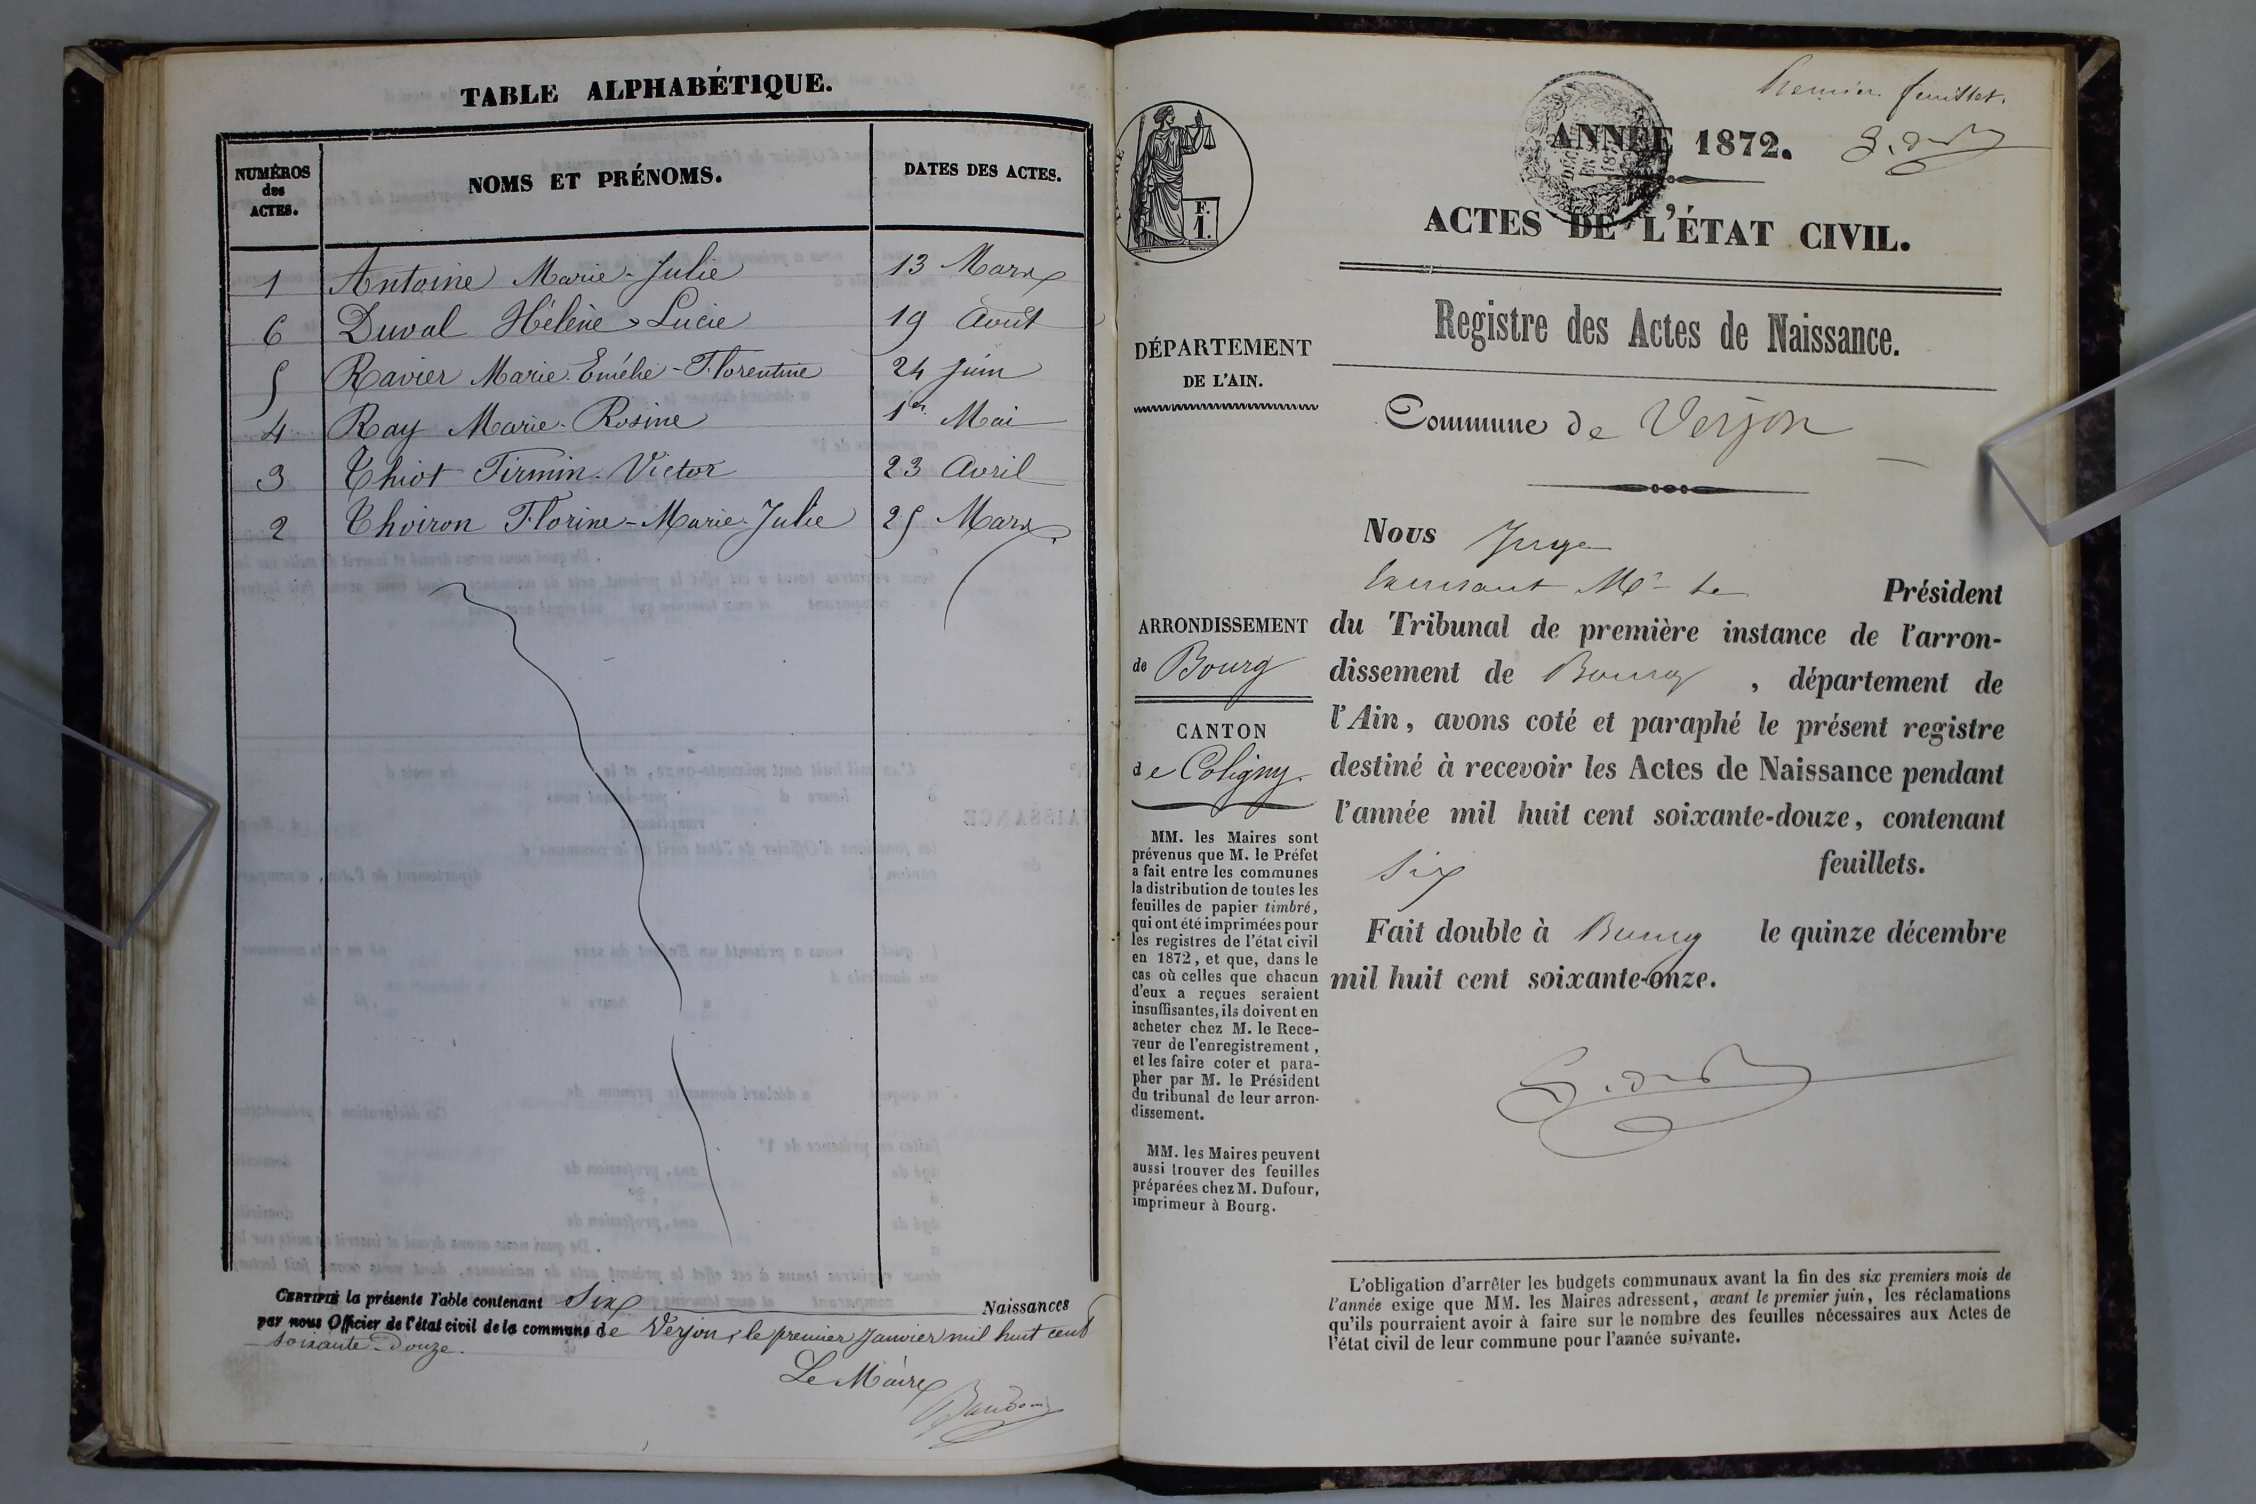 TABLE ALPHABÉTIQUE.
NUMÉROS des ACTES. NOMS ET PRÉNOMS. DATES DES ACTES.
1 Antoine Marie-Julie 13 Mars
6 Duval Hélène Lucie 19 Août
5 Ravier Marie Emélie-Florentine 24 Juin
4 Ray Marie-Rosine 1er Mai
3 Thiot Firmin-Victor 23 Avril
2 Thoiron Florine-Marie-Julie 25 Mars.
CERTIFIÉ la présente Table contenant Six Naissances
par nous Officier de l'état civil de la commune de Verjon, le premier Janvier mil huit cent
soixante-douze.
Le Maire
Premier feuillet.
ANNÉE 1872.
ACTES DE L'ÉTAT CIVIL.
Registre des Actes de Naissance.
F.
1.
DÉPARTEMENT
DE L'AIN.
ARRONDISSEMENT
de Bourg
CANTON
de Coligny.
MM. les Maires sont
prévenus que M. le Préfet
a fait entre les communes
la distribution de toutes les
feuilles de papier timbré,
qui ont été imprimées pour
les registres de l'état civil
en 1872, et que, dans le
cas où celles que chacun
d'eux a reçues seraient
insuffisantes, ils doivent en
acheter chez M. le Rece-
veur de l'enregistrement,
et les faire coter et para-
pher par M. le Président
du tribunal de leur arron-
dissement.
MM. les Maires peuvent
aussi trouver des feuilles
préparées chez M. Dufour,
imprimeur à Bourg.
Commune de Verjon
Nous Juge
Mr le Président
du Tribunal de première instance de l'arron-
dissement de Bourg, département de
l'Ain, avons coté et paraphé le présent registre
destiné à recevoir les Actes de Naissance pendant
l'année mil huit cent soixante-douze, contenant
Six feuillets.
Fait double à Bourg le quinze décembre
mil huit cent soixante-onze.
L'obligation d'arrêter les budgets communaux avant la fin des six premiers mois de
l'année exige que MM. les Maires adressent, avant le premier juin, les réclamations
qu'ils pourraient avoir à faire sur le nombre des feuilles nécessaires aux Actes de
l'état civil de leur commune pour l'année suivante.